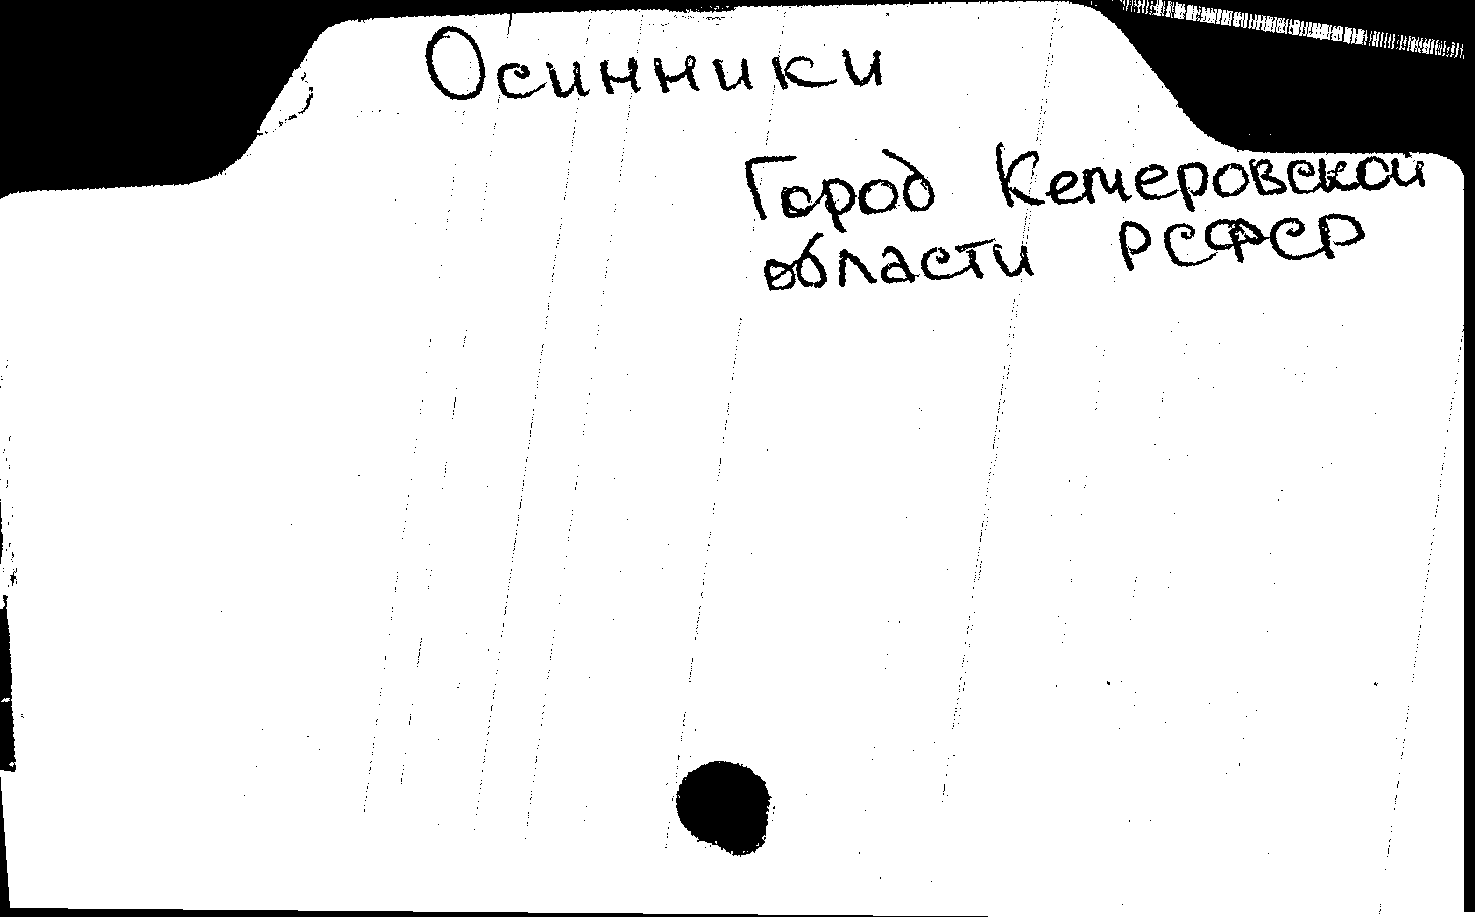 Осинники
Город Кемеровской
области РСФСР